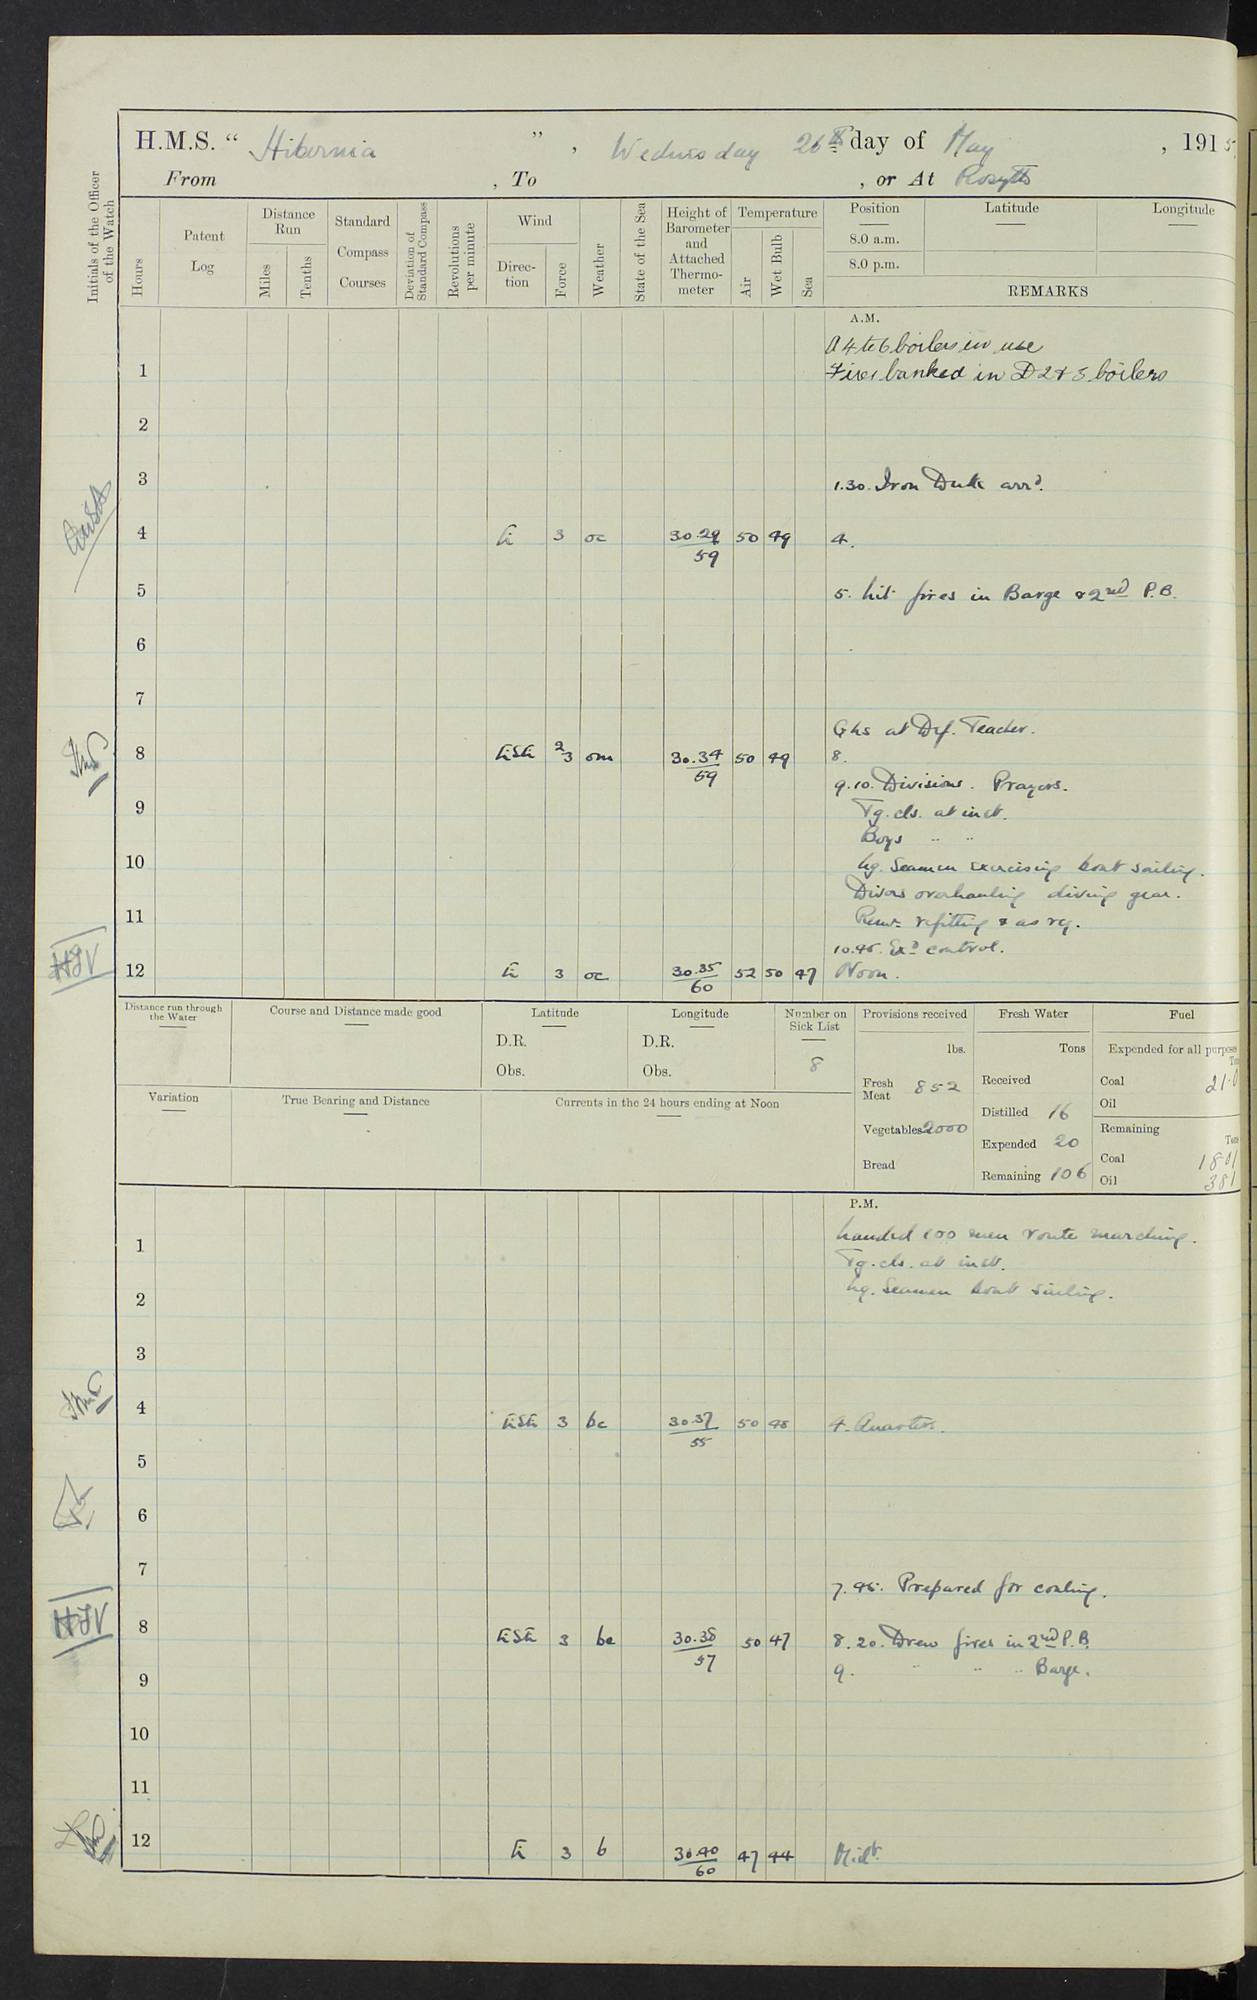 H.M.S. “ Hibernia ” , Wednesday 26th day of May , 1915
From , To , or At Rosyth
Initials of the Officer of the Watch
Hours
Patent Log
Distance Run
Miles
Tenths
Standard Compass Courses
Deviation of Standard Compass
Revolutions per minute
Wind
Direc-tion
Force
Weather
State of the Sea
Height of Barometer and Attached Thermo-meter
Temperature
Air
Wet Bulb
Sea
Position
Latitude
Longitude
8.0 a.m.
8.0 p.m.
REMARKS
A.M.
A 4 to 6 boilers in use
1 Fires banked in D 2 & 3 boilers
2
3 1.30. Iron Duke arrd.
4 E 3 oc 30.29 50 49 4.
59
5 5. Lit fires in Barge & 2nd P.B.
6
7
Ghs at Def. Teacher.
8 ESE 2/3 om 30.34 50 49 8.
59
9.10. Divisions. Prayers.
9 Tg. cls. at inst.
Boys " "
10 Lg. Seamen exercising boat sailing.
Divers overhauling diving gear.
11 Remr. refitting & as req.
10.45. Exd control.
HJV 12 E 3 oc 30.35 52 50 47 Noon.
60
Distance run through the Water
Course and Distance made good
Latitude
D.R.
Obs.
Longitude
D.R.
Obs.
Number on Sick List
8
Provisions received
lbs.
Fresh Meat 852
Vegetables 2000
Bread
Fresh Water
Tons
Received
Distilled 16
Expended 20
Remaining 106
Fuel
Expended for all purposes
Tons
Coal 21.0
Oil
Remaining
Tons
Coal 1801
Oil 381
Variation
True Bearing and Distance
Currents in the 24 hours ending at Noon
P.M.
1 Landed 100 men route marching.
Tg. cls. at inst.
2 Lg. Seamen boat sailing.
3
4 ESE 3 bc 30.37 50 48 4. Quarters.
55
5
6
7
7.45. Prepared for coaling.
HJV 8 ESE 3 bc 30.38 50 47 8.20. Drew fires in 2nd P.B.
57
9 9. " " " Barge.
10
11
12 E 3 b 30.40 47 44 Midt.
60